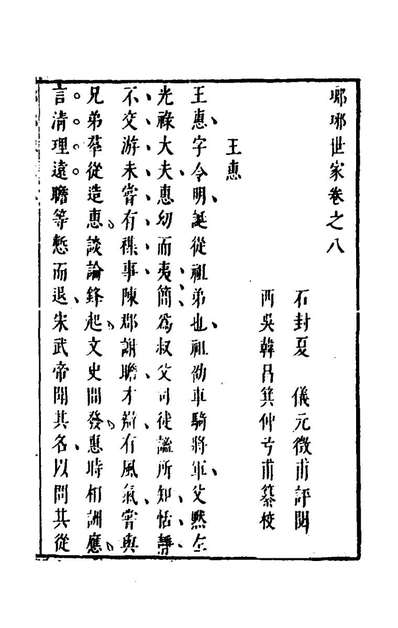 瑯琊世家卷之八
石封夏　儀元徴甫評閱
西吳韓昌箕仲弓甫纂校
王惠
王惠字令明誕從祖弟也祖劭車騎將軍父黙左
光祿大夫惠幼而夷簡爲叔父司徒謐所知恬靜
不交游未嘗有襍事陳郡謝瞻才辯有風氣嘗與
兄弟羣從造惠談論鋒起文史間發惠時相詶應
言清理遠瞻等慙而退宋武帝聞其名以問其從